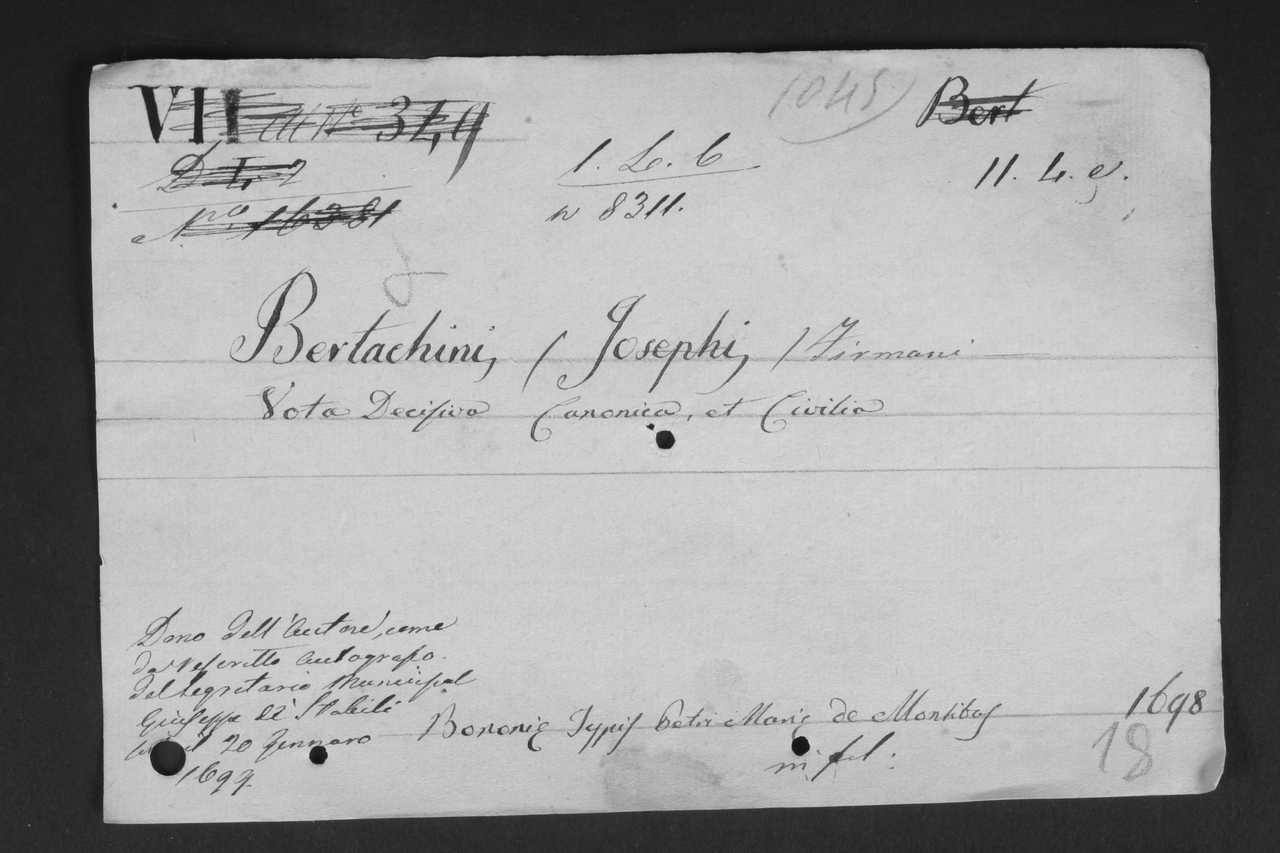 VII 349
1045
Bert
D L 2
1. L. 6
11. 4. e.
N.ro 16381
n 8311.
Bertachini, (Josephi,) Firmani
Vota Decisiva Canonica, et Civilia
Dono dell'Autore, come
da rescritto autografo
del Segretario Municipal
Giuseppe de' Stabili
20 Gennaro
1699.
Bononie Typis Petri Marie de Montibus 1698
in fol:
18